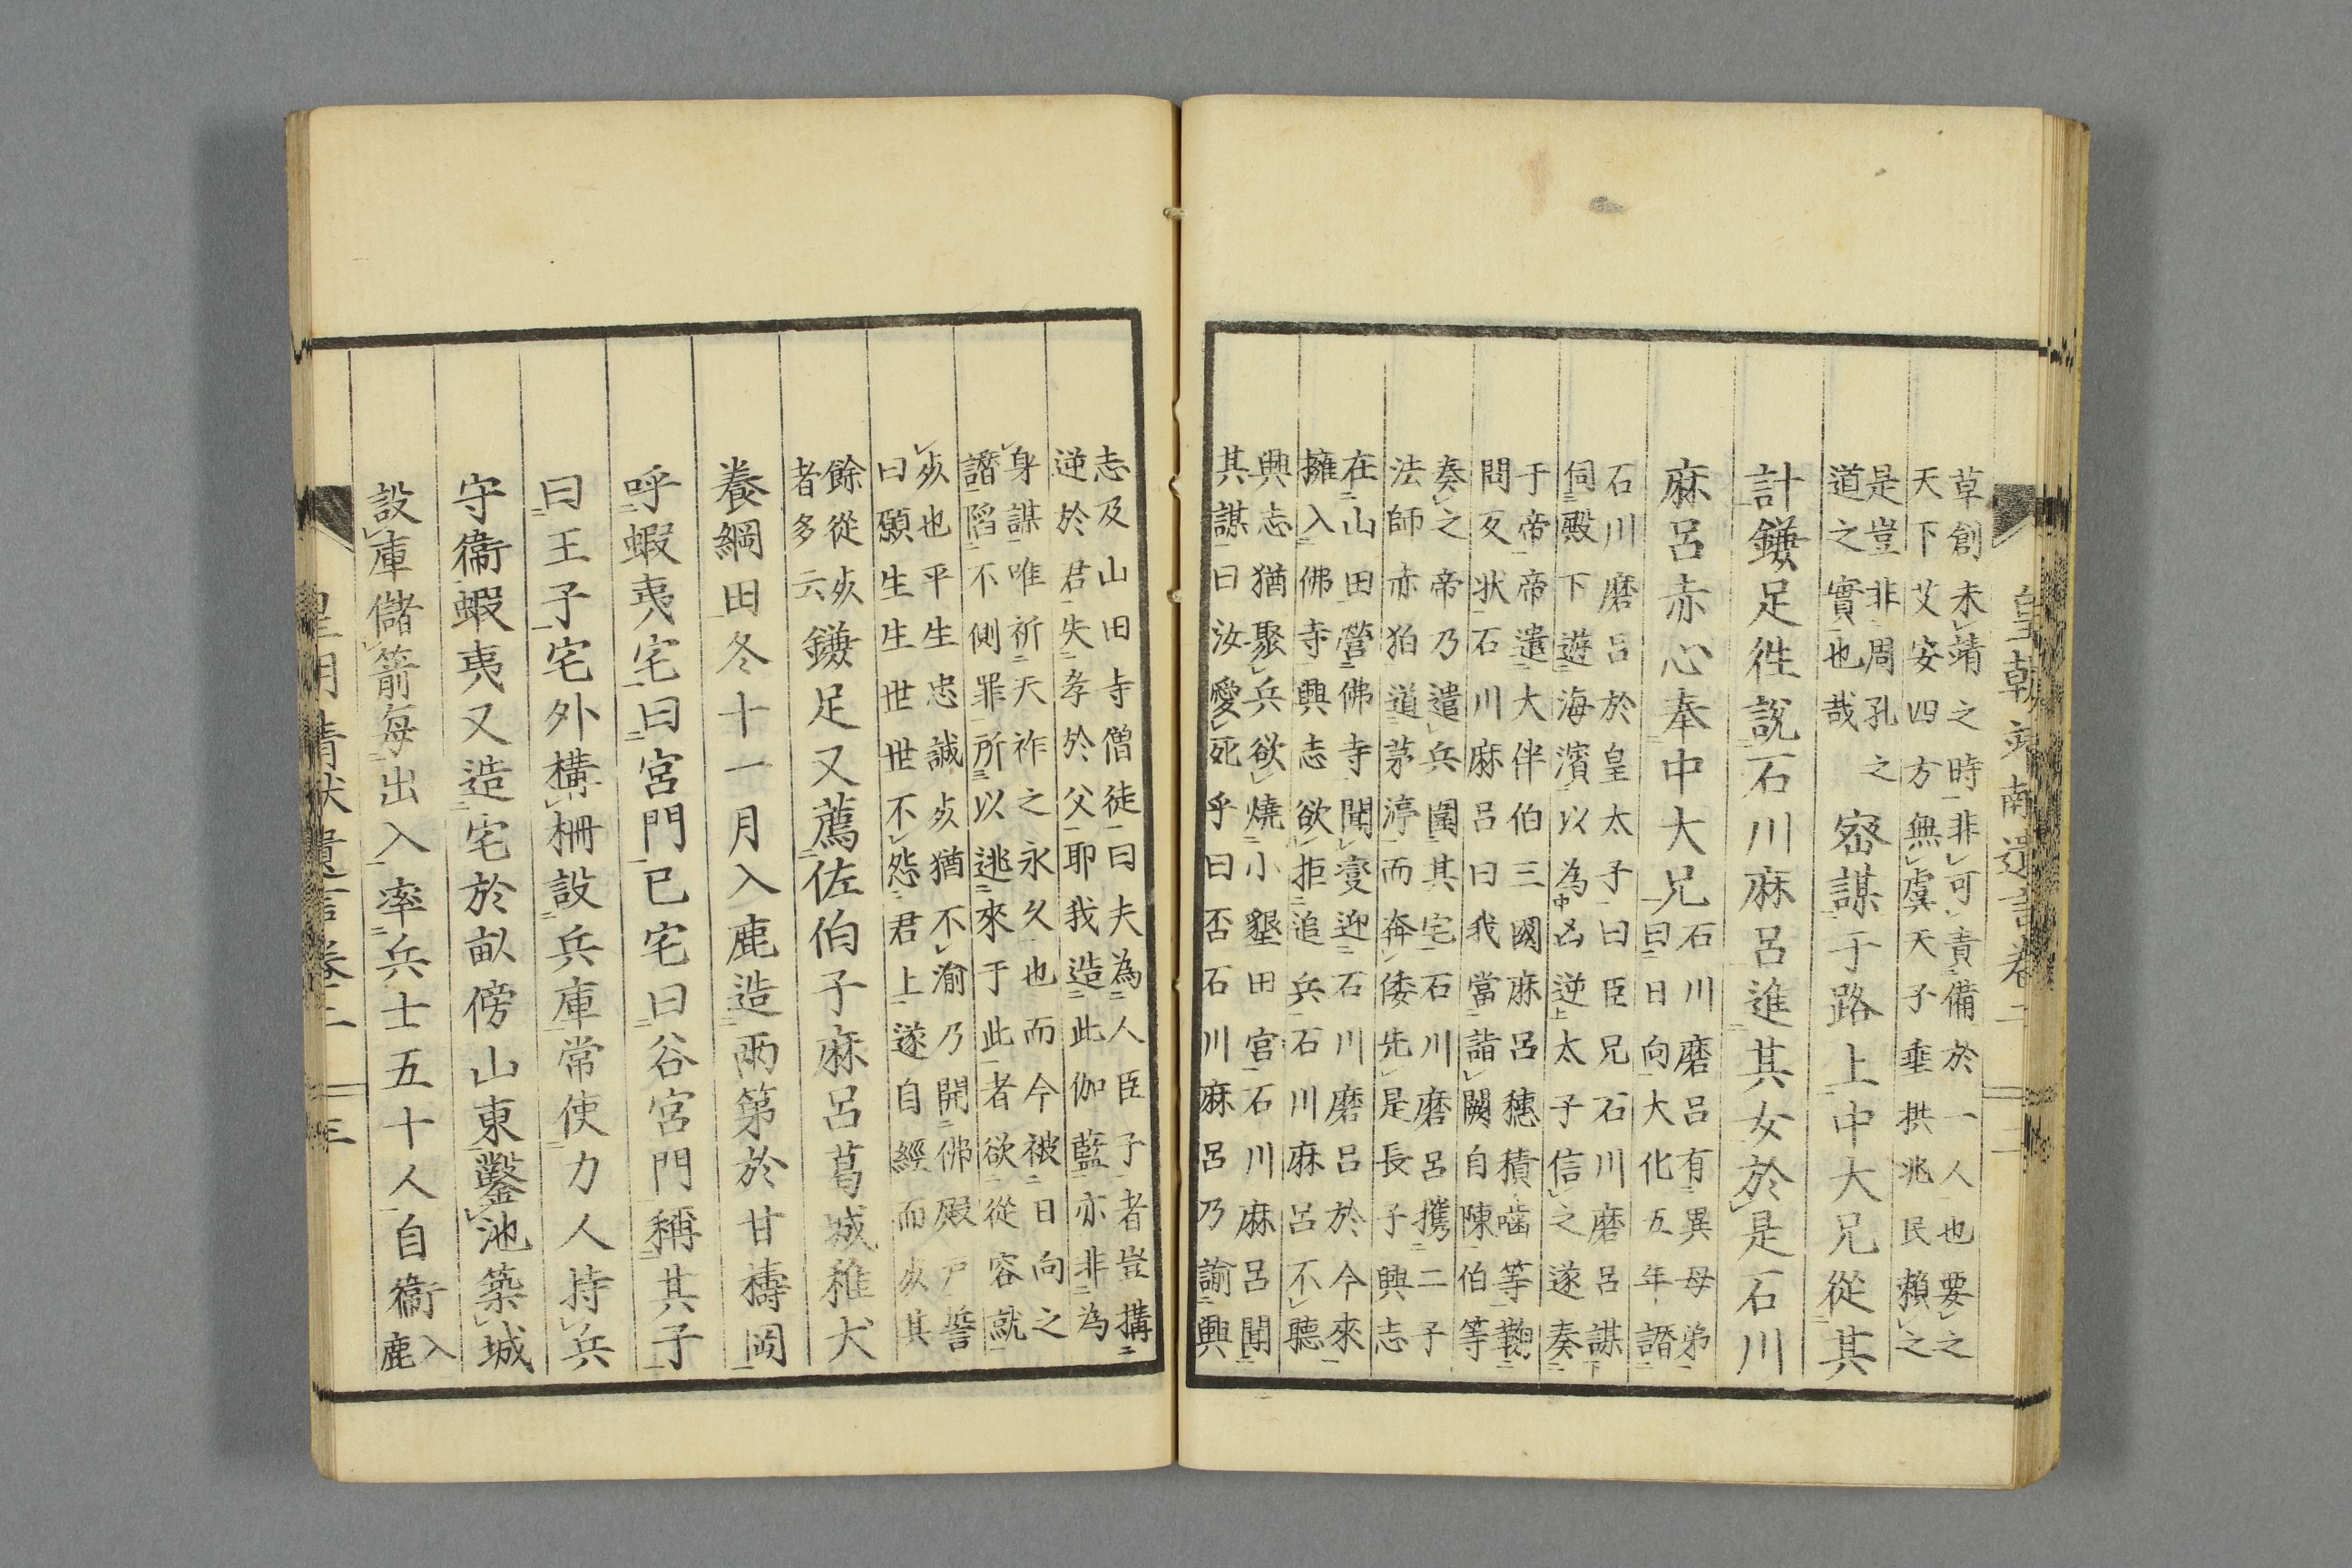 草創未靖之時非可責備於一人也要之
天下艾安四方無虞天子垂拱兆民賴之
是豈非周孔之
道之實也哉
密謀于路上中大兄從其
計鎌足往說石川麻呂進其女於是石川
麻呂赤心奉中大兄
石川磨呂有異母弟
曰日向大化五年譖
石川磨呂於皇太子曰臣兄石川磨呂謀
伺殿下遊海濱以為凶逆太子信之遂奏
于帝帝遣大伴伯三國麻呂穗積嚙等鞫
問反狀石川麻呂曰我當詣闕自陳伯等
奏之帝乃遣兵圍其宅石川磨呂攜二子
法師赤狛道茅渟而奔倭先是長子興志
在山田營佛寺聞變迎石川磨呂於今來
擁入佛寺興志欲拒追兵石川麻呂不聽
興志猶聚兵欲燒小墾田宮石川麻呂聞
其謀曰汝愛死乎曰否石川麻呂乃諭興
志及山田寺僧徒曰夫為人臣子者豈搆
逆於君失孝於父耶我造此伽藍亦非為
身謀唯祈天祚之永久也而今被日向之
譖陷不側罪所以逃來于此者欲從容就
死也平生忠誠死猶不渝乃開佛殿戶誓
曰願生生世世不怨君上遂自經而死其
餘從死
者多云
鎌足又薦佐伯子麻呂葛城稚犬
養網田冬十一月入鹿造兩第於甘檮岡
呼蝦夷宅曰宮門己宅曰谷宮門稱其子
曰王子宅外構柵設兵庫常使力人持兵
守衞蝦夷又造宅於畝傍山東鑿池築城
設庫儲箭每出入率兵士五十人自衞
入
鹿
皇朝靖獻遺言卷二
二
三